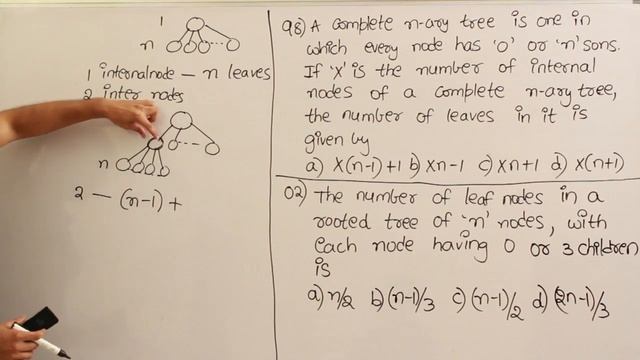 1
n
1 internalnode - n leaves
2 inter nodes
n
2 - (n-1) +
Q8) A complete n-ary tree is one in
which every node has '0' or 'n' sons.
If 'X' is the number of internal
nodes of a complete n-ary tree,
the number of leaves in it is
given by
a) X(n-1)+1 b) Xn-1 c) Xn+1 d) X(n+1)
02) The number of leaf nodes in a
rooted tree of 'n' nodes, with
each node having 0 or 3 children
is
a) n/2 b) (n-1)/3 c) (n-1)/2 d) (2n-1)/3